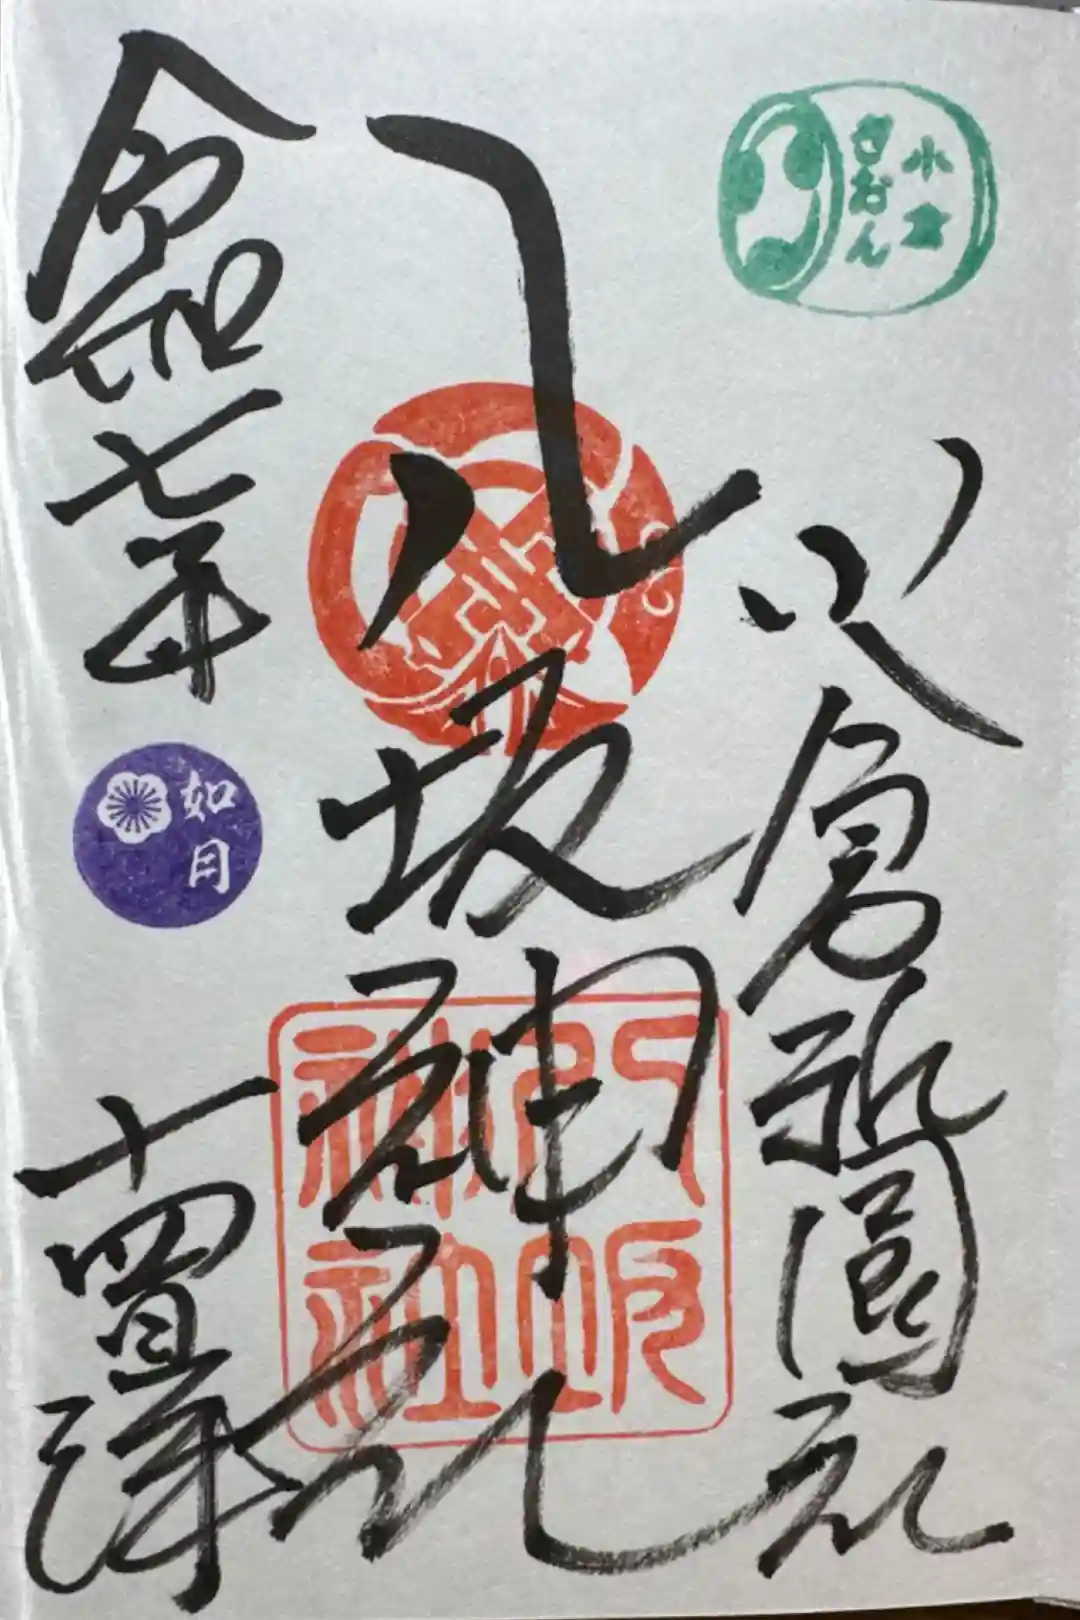 小倉
ぎおん
小倉祇園社
八坂神社
八坂
神社
令和七年
如月
十四日